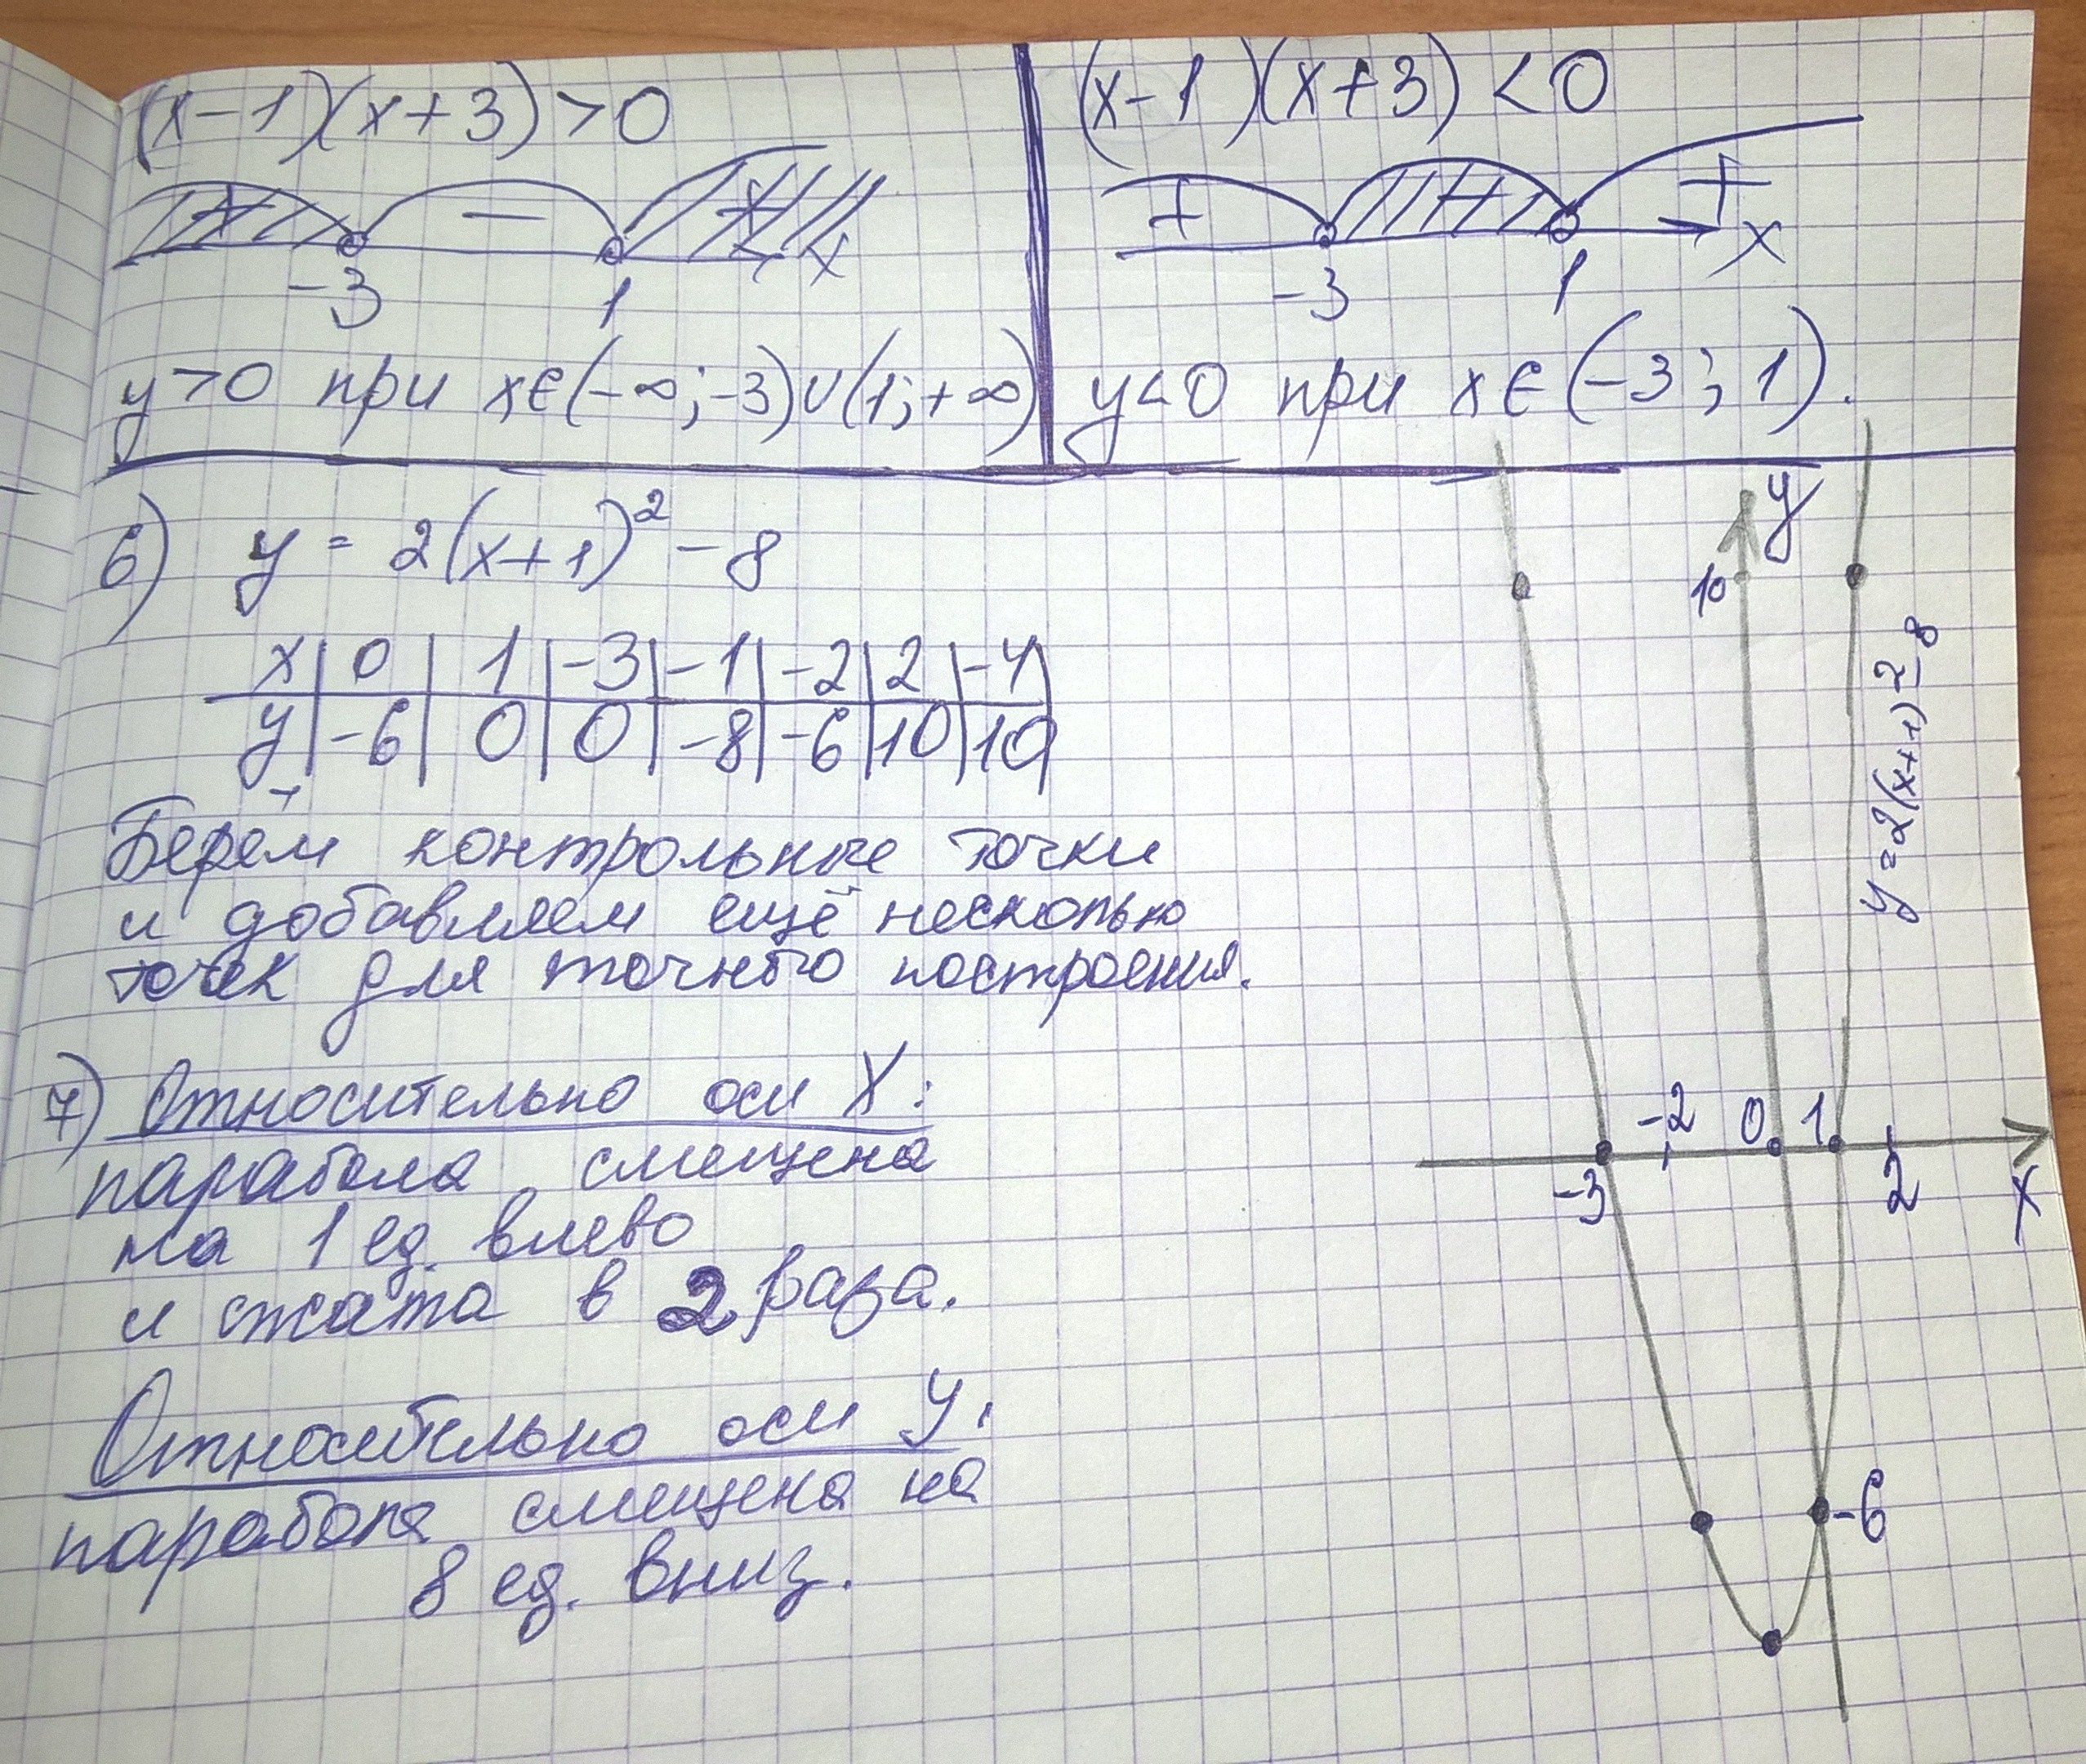 (x-1)(x+3)>0
+ - +
-3 1 x
y>0 при x∈(-∞;-3)∪(1;+∞)
(x-1)(x+3)<0
+ - +
-3 1 x
y<0 при x∈(-3;1).
6) y = 2(x+1)² - 8
x | 0 | 1 | -3 | -1 | -2 | 2 | -4
y | -6 | 0 | 0 | -8 | -6 | 10 | 10
Берём контрольные точки
и добавляем ещё несколько
точек для точного построения.
7) Относительно оси X:
парабола смещена
на 1 ед. влево
и сжата в 2 раза.
Относительно оси У:
парабола смещена на
8 ед. вниз.
y
10
y=2(x+1)²-8
-3 -2 0 1 2 x
-6